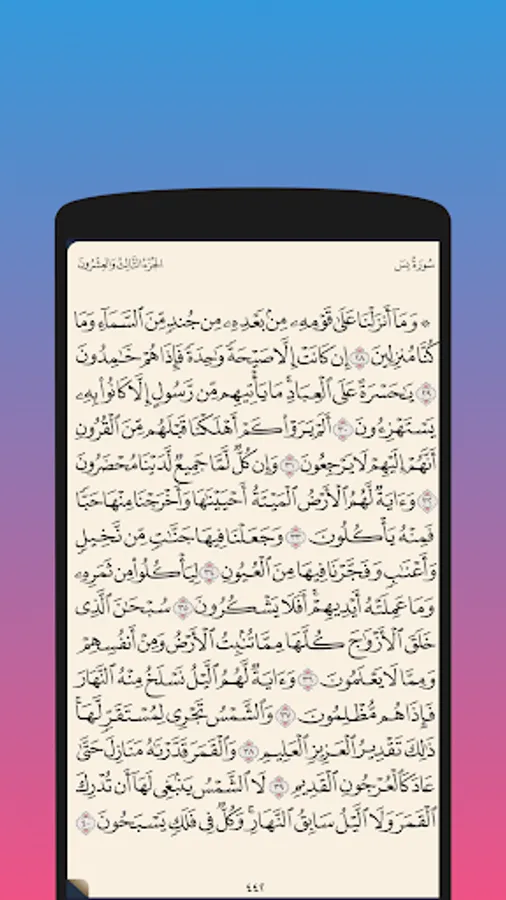 سُورَةُ يسٓ
الجُزْءُ الثَّالِثُ وَالعِشْرُونَ
۞ وَمَآ أَنزَلْنَا عَلَىٰ قَوْمِهِۦ مِنۢ بَعْدِهِۦ مِن جُندٍ مِّنَ ٱلسَّمَآءِ وَمَا
كُنَّا مُنزِلِينَ ٢٨ إِن كَانَتْ إِلَّا صَيْحَةً وَٰحِدَةً فَإِذَا هُمْ خَٰمِدُونَ
٢٩ يَٰحَسْرَةً عَلَى ٱلْعِبَادِۚ مَا يَأْتِيهِم مِّن رَّسُولٍ إِلَّا كَانُوا۟ بِهِۦ
يَسْتَهْزِءُونَ ٣٠ أَلَمْ يَرَوْا۟ كَمْ أَهْلَكْنَا قَبْلَهُم مِّنَ ٱلْقُرُونِ
أَنَّهُمْ إِلَيْهِمْ لَا يَرْجِعُونَ ٣١ وَإِن كُلٌّ لَّمَّا جَمِيعٌ لَّدَيْنَا مُحْضَرُونَ
٣٢ وَءَايَةٌ لَّهُمُ ٱلْأَرْضُ ٱلْمَيْتَةُ أَحْيَيْنَٰهَا وَأَخْرَجْنَا مِنْهَا حَبًّا
فَمِنْهُ يَأْكُلُونَ ٣٣ وَجَعَلْنَا فِيهَا جَنَّٰتٍ مِّن نَّخِيلٍ
وَأَعْنَٰبٍ وَفَجَّرْنَا فِيهَا مِنَ ٱلْعُيُونِ ٣٤ لِيَأْكُلُوا۟ مِن ثَمَرِهِۦ
وَمَا عَمِلَتْهُ أَيْدِيهِمْۖ أَفَلَا يَشْكُرُونَ ٣٥ سُبْحَٰنَ ٱلَّذِى
خَلَقَ ٱلْأَزْوَٰجَ كُلَّهَا مِمَّا تُنۢبِتُ ٱلْأَرْضُ وَمِنْ أَنفُسِهِمْ
وَمِمَّا لَا يَعْلَمُونَ ٣٦ وَءَايَةٌ لَّهُمُ ٱلَّيْلُ نَسْلَخُ مِنْهُ ٱلنَّهَارَ
فَإِذَا هُم مُّظْلِمُونَ ٣٧ وَٱلشَّمْسُ تَجْرِى لِمُسْتَقَرٍّ لَّهَاۚ
ذَٰلِكَ تَقْدِيرُ ٱلْعَزِيزِ ٱلْعَلِيمِ ٣٨ وَٱلْقَمَرَ قَدَّرْنَٰهُ مَنَازِلَ حَتَّىٰ
عَادَ كَٱلْعُرْجُونِ ٱلْقَدِيمِ ٣٩ لَا ٱلشَّمْسُ يَنۢبَغِى لَهَآ أَن تُدْرِكَ
ٱلْقَمَرَ وَلَا ٱلَّيْلُ سَابِقُ ٱلنَّهَارِۚ وَكُلٌّ فِى فَلَكٍ يَسْبَحُونَ ٤٠
٤٤٢